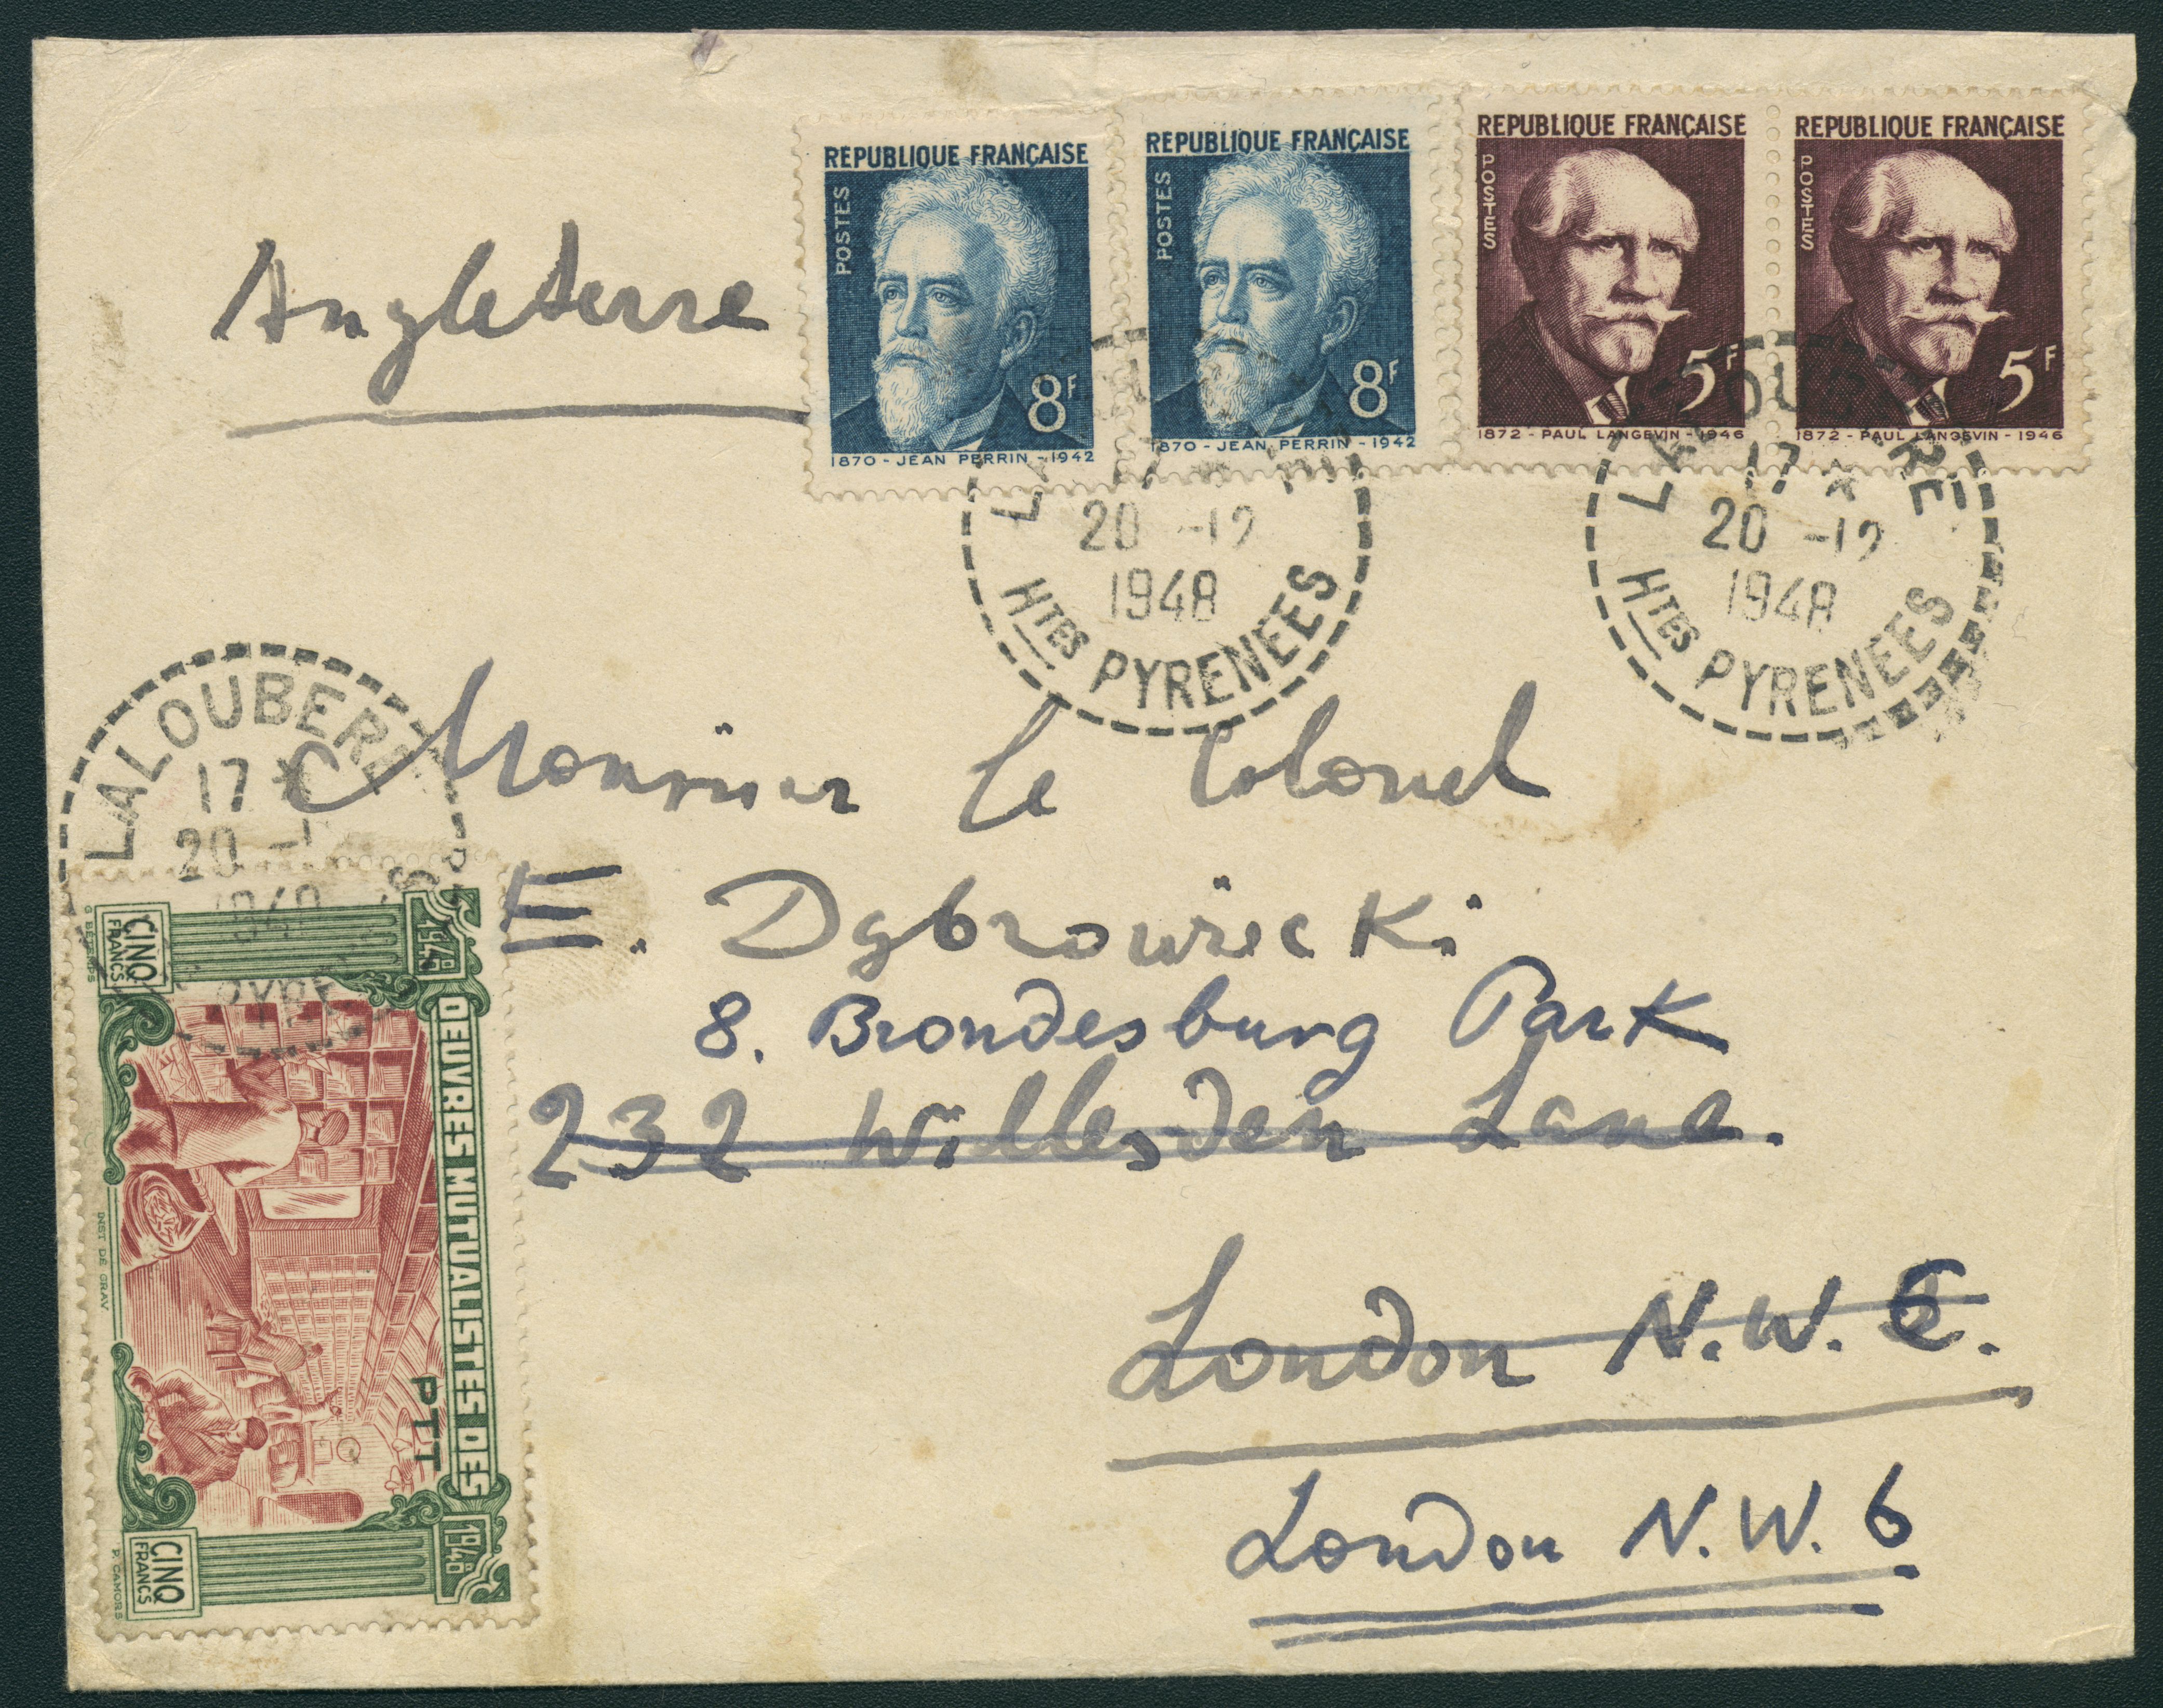 REPUBLIQUE FRANÇAISE
POSTES
8F
1870 - JEAN PERRIN - 1942
REPUBLIQUE FRANÇAISE
POSTES
8F
1870 - JEAN PERRIN - 1942
REPUBLIQUE FRANÇAISE
POSTES
5F
1872 - PAUL LANGEVIN - 1946
REPUBLIQUE FRANÇAISE
POSTES
5F
1872 - PAUL LANGEVIN - 1946
Angleterre
20 -12
1948
HTES PYRENEES
LALOUBERE
17 *
20 -12
1948
HTES PYRENEES
LALOUBERE
17 *
20 -1
1948
Monsieur le Colonel
E. Dąbrowiecki
8. Brondesburg Park
232 Willesden Lane.
London N.W. 6.
London N.W. 6
1948
OEUVRES MUTUALISTES DES
PTT
1948
CINQ
FRANCS
CINQ
FRANCS
INST DE GRAV
P. CAMORS